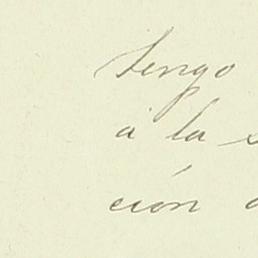 tengo
a la s
ción